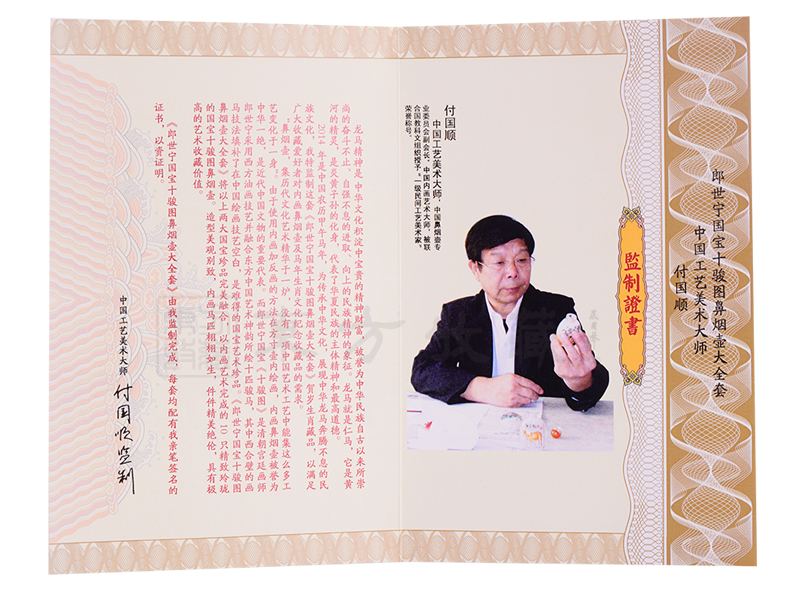 郎世宁国宝十骏图鼻烟壶大全套
中国工艺美术大师
付国顺
監制證書
付国顺
中国工艺美术大师，中国鼻烟壶专
业委员会副会长，中国内画艺术大师，被联
合国教科文组织授予，一级民间工艺美术家。
荣誉称号。
龙马精神是中华文化积淀中宝贵的精神财富，被誉为中华民族自古以来所崇
尚的奋斗不止、自强不息的进取、向上的民族精神的象征。龙马就是仁马，它是黄
河的精灵，是炎黄子孙的化身，代表了华夏民族的主体精神和最高道德。
2014年是中国农历甲午马年，为传承中华文化，展现中华龙马奔腾不息的民
族文化，我特监制这套《郎世宁国宝十骏图鼻烟壶大全套》贺岁生肖藏品，以满足
广大收藏爱好者对内画鼻烟壶及马年生肖文化纪念收藏品的需求。
鼻烟壶，集历代文化艺术精华于一炉，没有一项中国艺术工艺中能集这么多工
艺变化于一身。由于使用内画加反画的方法在方寸壶内绘画，内画鼻烟壶被誉为
中华一绝，是近代中国文物的重要代表。而郎世宁国宝《十骏图》是清朝宫廷画师
郎世宁采用西方油画技艺并融合东方中国艺术神韵所绘十匹骏马，其中西合壁的画
马技法填补了在中国绘画技艺空白，是难得的国宝艺术珍品。《郎世宁国宝十骏图
鼻烟壶大全套》将以上两大国宝珍品完美融合，以内画艺术完成的10只精致玲珑
的国宝十骏图鼻烟壶。造型美观别致，内画马匹栩栩如生，件件精美绝伦，具有极
高的艺术收藏价值。
《郎世宁国宝十骏图鼻烟壶大全套》由我监制完成，每套均配有我亲笔签名的
证书，以资证明。
中国工艺美术大师
付国顺监制